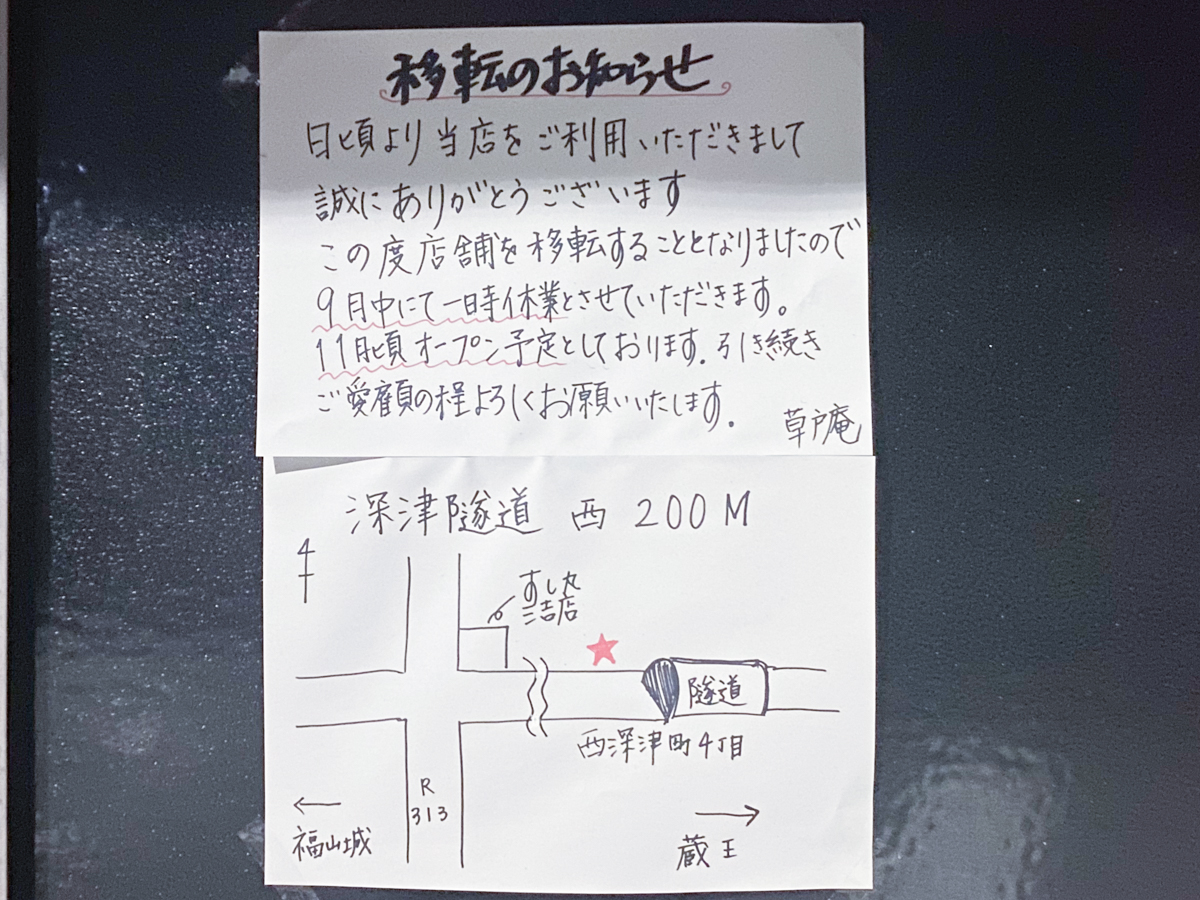 移転のお知らせ
日頃より当店をご利用いただきまして
誠にありがとうございます
この度店舗を移転することとなりましたので
9月中にて一時休業とさせていただきます。
11月頃オープン予定としております。引き続き
ご愛顧の程よろしくお願いいたします。
草戸庵
深津隧道 西 200M
4
すし丸
三吉店
隧道
西深津町4丁目
R
313
福山城
蔵王